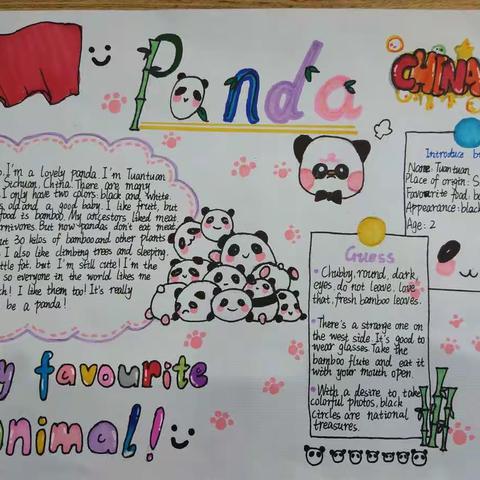 Panda
CHINA
I'm a lovely panda. I'm Tuantuan
Sichuan, China. There are many
I only have two colors: black and white
old and a good baby. I like fruit, but
food is bamboo. My ancestors liked meat
but now pandas don't eat meat
30 kilos of bamboo and other plants
I also like climbing trees and sleeping.
fat. but I'm still cute! I'm the
so everyone in the world likes me
I like them too! It's really
be a panda!
favourite
animal!
Introduce
Name: Tuantuan
Place of origin: S
Favourite food: b
Appearance: black
Age: 2
Guess
• Chubby, round, dark
eyes, do not leave. love
that, fresh bamboo leaves.
• There's a strange one on
the west side. It's good to
wear glasses. Take the
bamboo flute and eat it
with your mouth open.
• With a desire to take
colorful photos, black
circles are national
treasures.